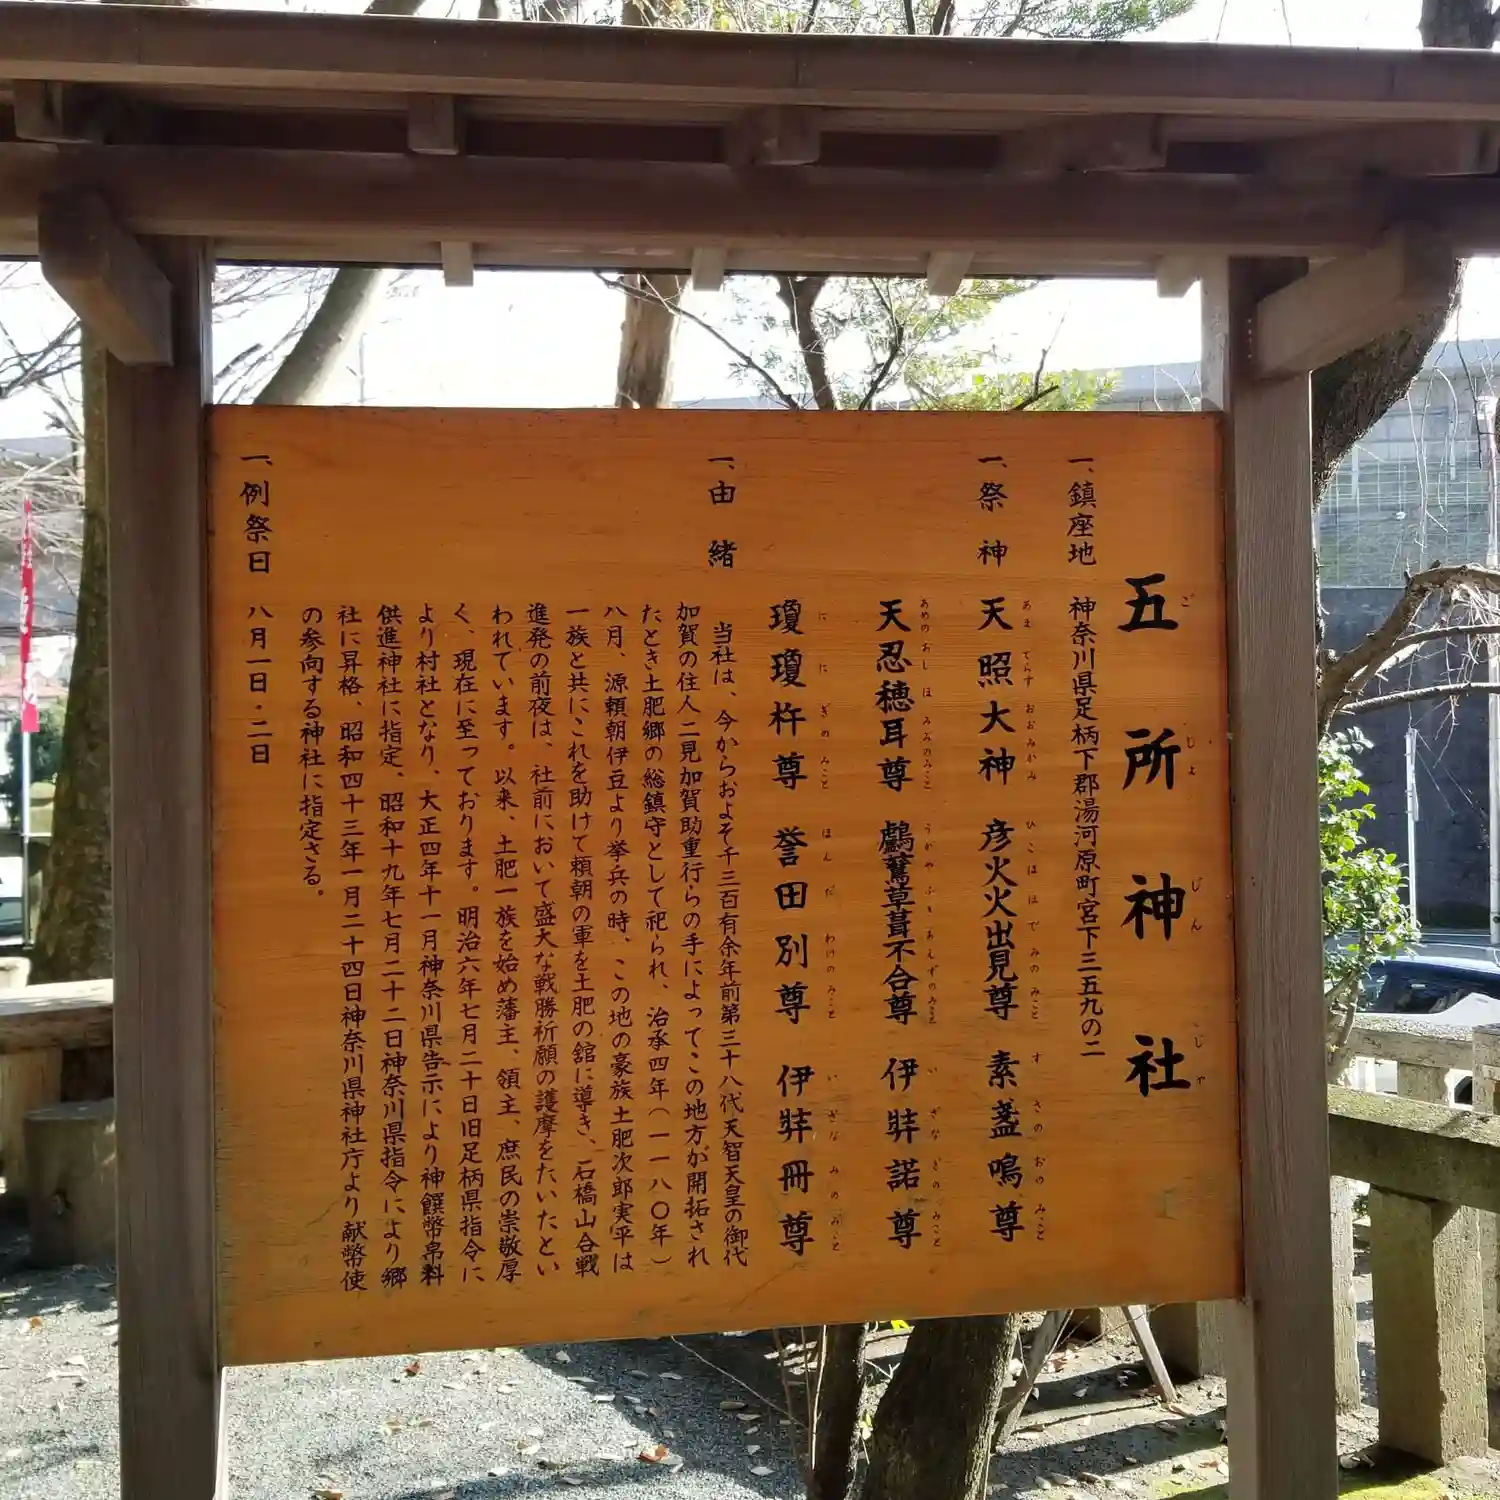 五所神社
ごしょじんじゃ
一、鎮座地 神奈川県足柄下郡湯河原町宮下三五九の二
一、祭神 天照大神 彦火火出見尊 素盞嗚尊
あまてらすおおみかみ ひこほほでみのみこと すさのおのみこと
天忍穂耳尊 鸕鶿草葺不合尊 伊弉諾尊
あめのおしほみみのみこと うがやふきあえずのみこと いざなぎのみこと
瓊瓊杵尊 誉田別尊 伊弉冊尊
ににぎのみこと ほんだわけのみこと いざなみのみこと
一、由緒
当社は、今からおよそ千三百有余年前第三十八代天智天皇の御代
加賀の住人二見加賀助重行らの手によってこの地方が開拓され
たとき土肥郷の総鎮守として祀られ、治承四年(一一八〇年)
八月、源頼朝伊豆より挙兵の時、この地の豪族土肥次郎実平は
一族と共にこれを助けて頼朝の軍を土肥の舘に導き、石橋山合戦
進発の前夜は、社前において盛大な戦勝祈願の護摩をたいたとい
われています。以来、土肥一族を始め藩主、領主、庶民の崇敬厚
く、現在に至っております。明治六年七月二十日旧足柄県指令に
より村社となり、大正四年十一月神奈川県告示により神饌幣帛料
供進神社に指定、昭和十九年七月二十二日神奈川県指令により郷
社に昇格、昭和四十三年一月二十四日神奈川県神社庁より献幣使
の参向する神社に指定さる。
一、例祭日 八月一日・二日